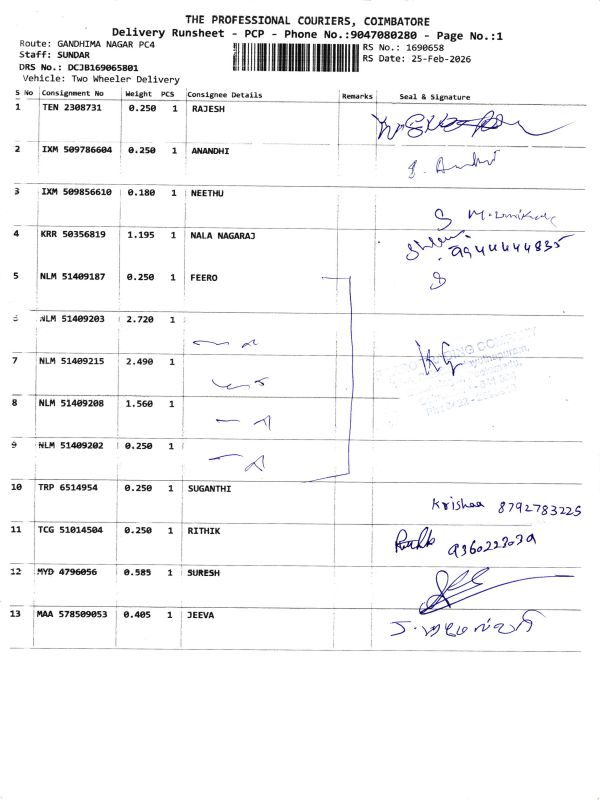 THE PROFESSIONAL COURIERS, COIMBATORE
Delivery Runsheet - PCP - Phone No.:9047080280 - Page No.:1
Route: GANDHIMA NAGAR PC4
Staff: SUNDAR
DRS No.: DCJB169065801
Vehicle: Two Wheeler Delivery
RS No.: 1690658
RS Date: 25-Feb-2026
S No Consignment No Weight PCS Consignee Details Remarks Seal & Signature
1 TEN 2308731 0.250 1 RAJESH
2 IXM 509786604 0.250 1 ANANDHI
3 IXM 509856610 0.180 1 NEETHU
4 KRR 50356819 1.195 1 NALA NAGARAJ 9944444835
5 NLM 51409187 0.250 1 FEERO
6 NLM 51409203 2.720 1
7 NLM 51409215 2.490 1
8 NLM 51409208 1.560 1
9 NLM 51409202 0.250 1
10 TRP 6514954 0.250 1 SUGANTHI Krishaa 8792783225
11 TCG 51014504 0.250 1 RITHIK
12 MYD 4796056 0.585 1 SURESH
13 MAA 578509053 0.405 1 JEEVA